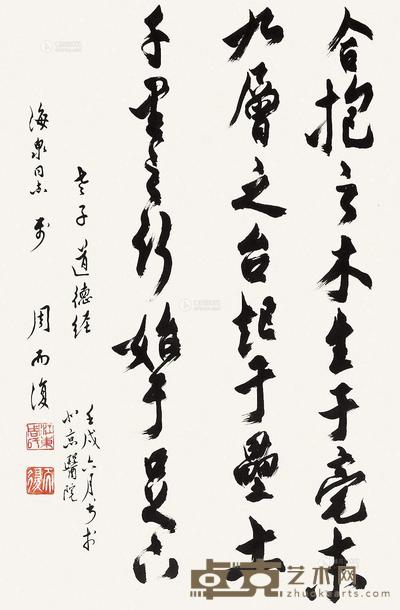 合抱之木生于毫末
九層之台起于壘土
千里之行始于足下
老子道德经
壬戌六月书於
北京醫院
海泉同志
周而復
卓克艺术网
www.zhuokearts.com